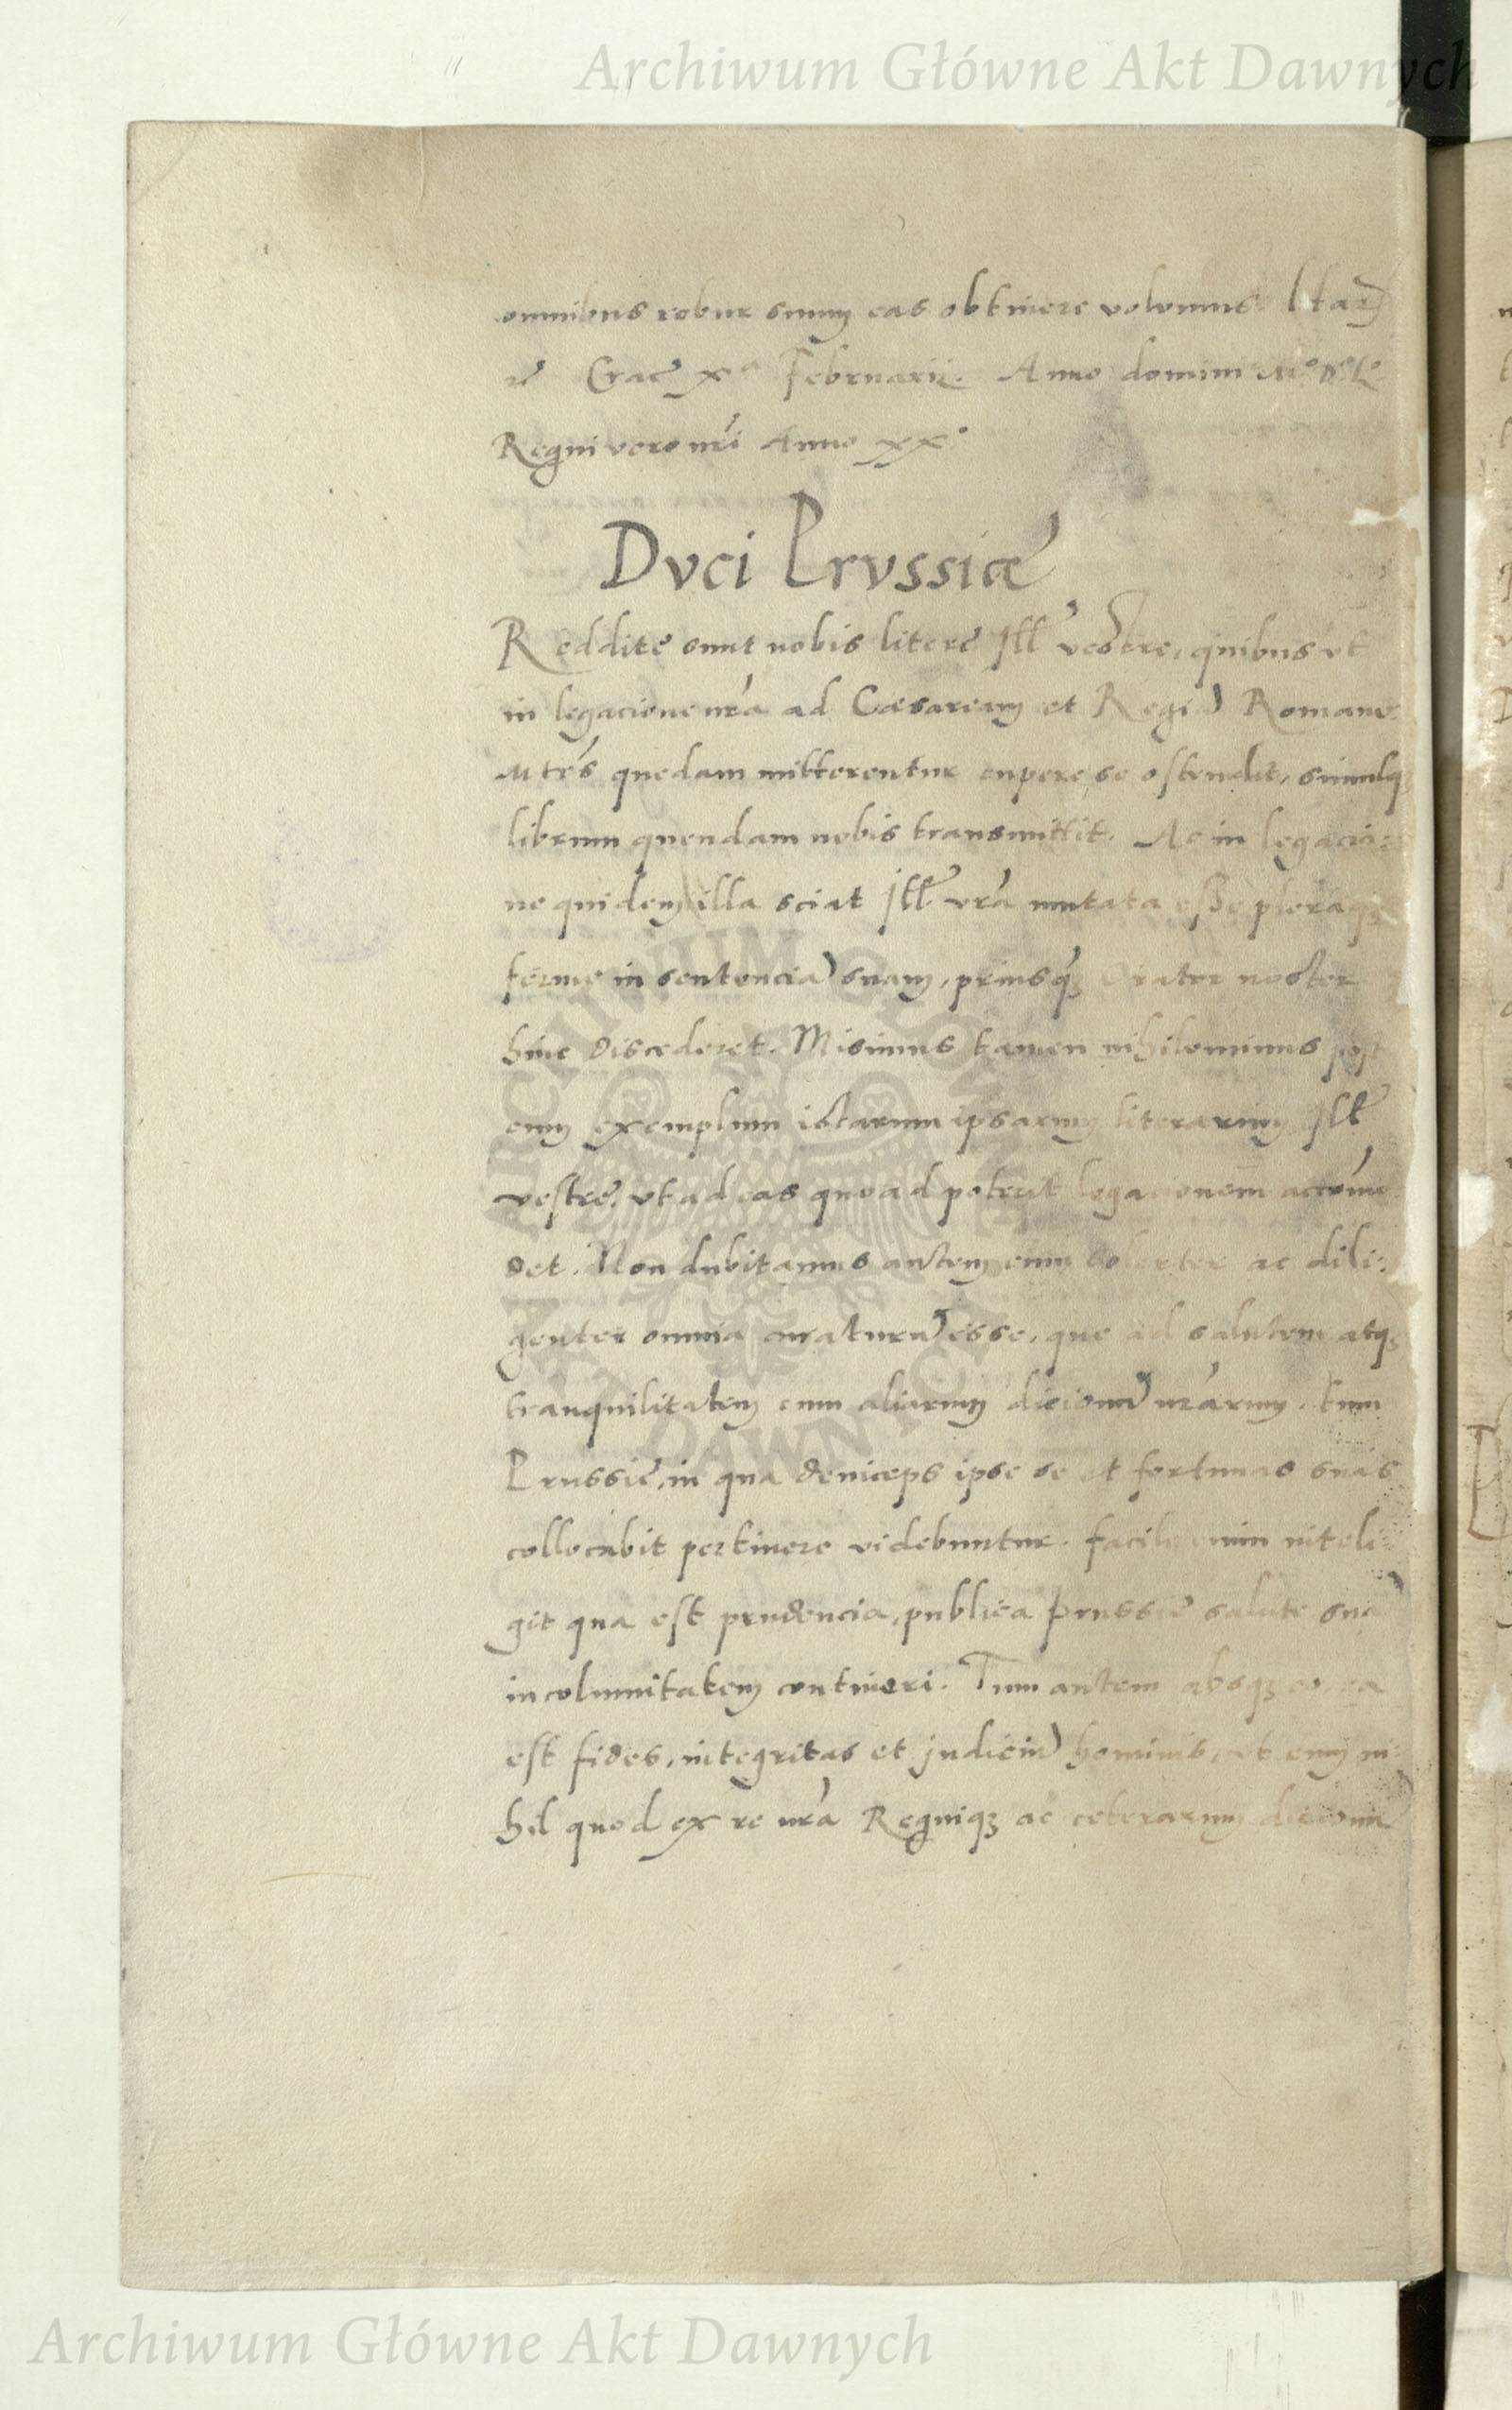 Archiwum Główne Akt Dawnych
omnibus robur suum eas obtinere volumus. l̃tar̃
Crac̃ xᵃ Februarii. Anno domini Mº Dº Lº
Regni vero nr̃i Anno xxº
Dvci Prvssiæ
Reddite sunt nobis litere Ill̃ vestre, quibus vt
in legacione nr̃a ad Cæsaream et Regiã Romane
Mtẽs quedam mitterentur cupere se ostendit, simulq̃
librum quendam nobis transmittit. Ac in legacio:
ne quidem illa sciat Ill̃ vr̃a mutata esse pleraq̃
ferme in sentenciã suam, priusq̃ Orator noster
hinc discederet. Misimus tamen nihilominus post
eum exemplum istarum ipsarum literarum Ill̃
vestre, vt ad eas quoad poterit legacionem accõmo
det. Non dubitamus autem eum solerter ac dili:
genter omnia curaturũ esse, que ad salutem atq̃
tranquilitatem cum aliarum dicionũ nr̃arum. tum
Prussie, in qua deinceps ipse se et fortunas suas
collocabit pertinere videbuntur. facile enim intele:
git qua est prudencia, publica Prussie salute suã
incolumitatem contineri. Tum autem absq̃ eo ea
est fides, integritas et judiciũ hominis, vt eum ni:
hil quod ex re nr̃a Regniq̃ ac ceterarum dicionũ
ARCHIWUM GŁÓWNE
AKT DAWNYCH
Archiwum Główne Akt Dawnych